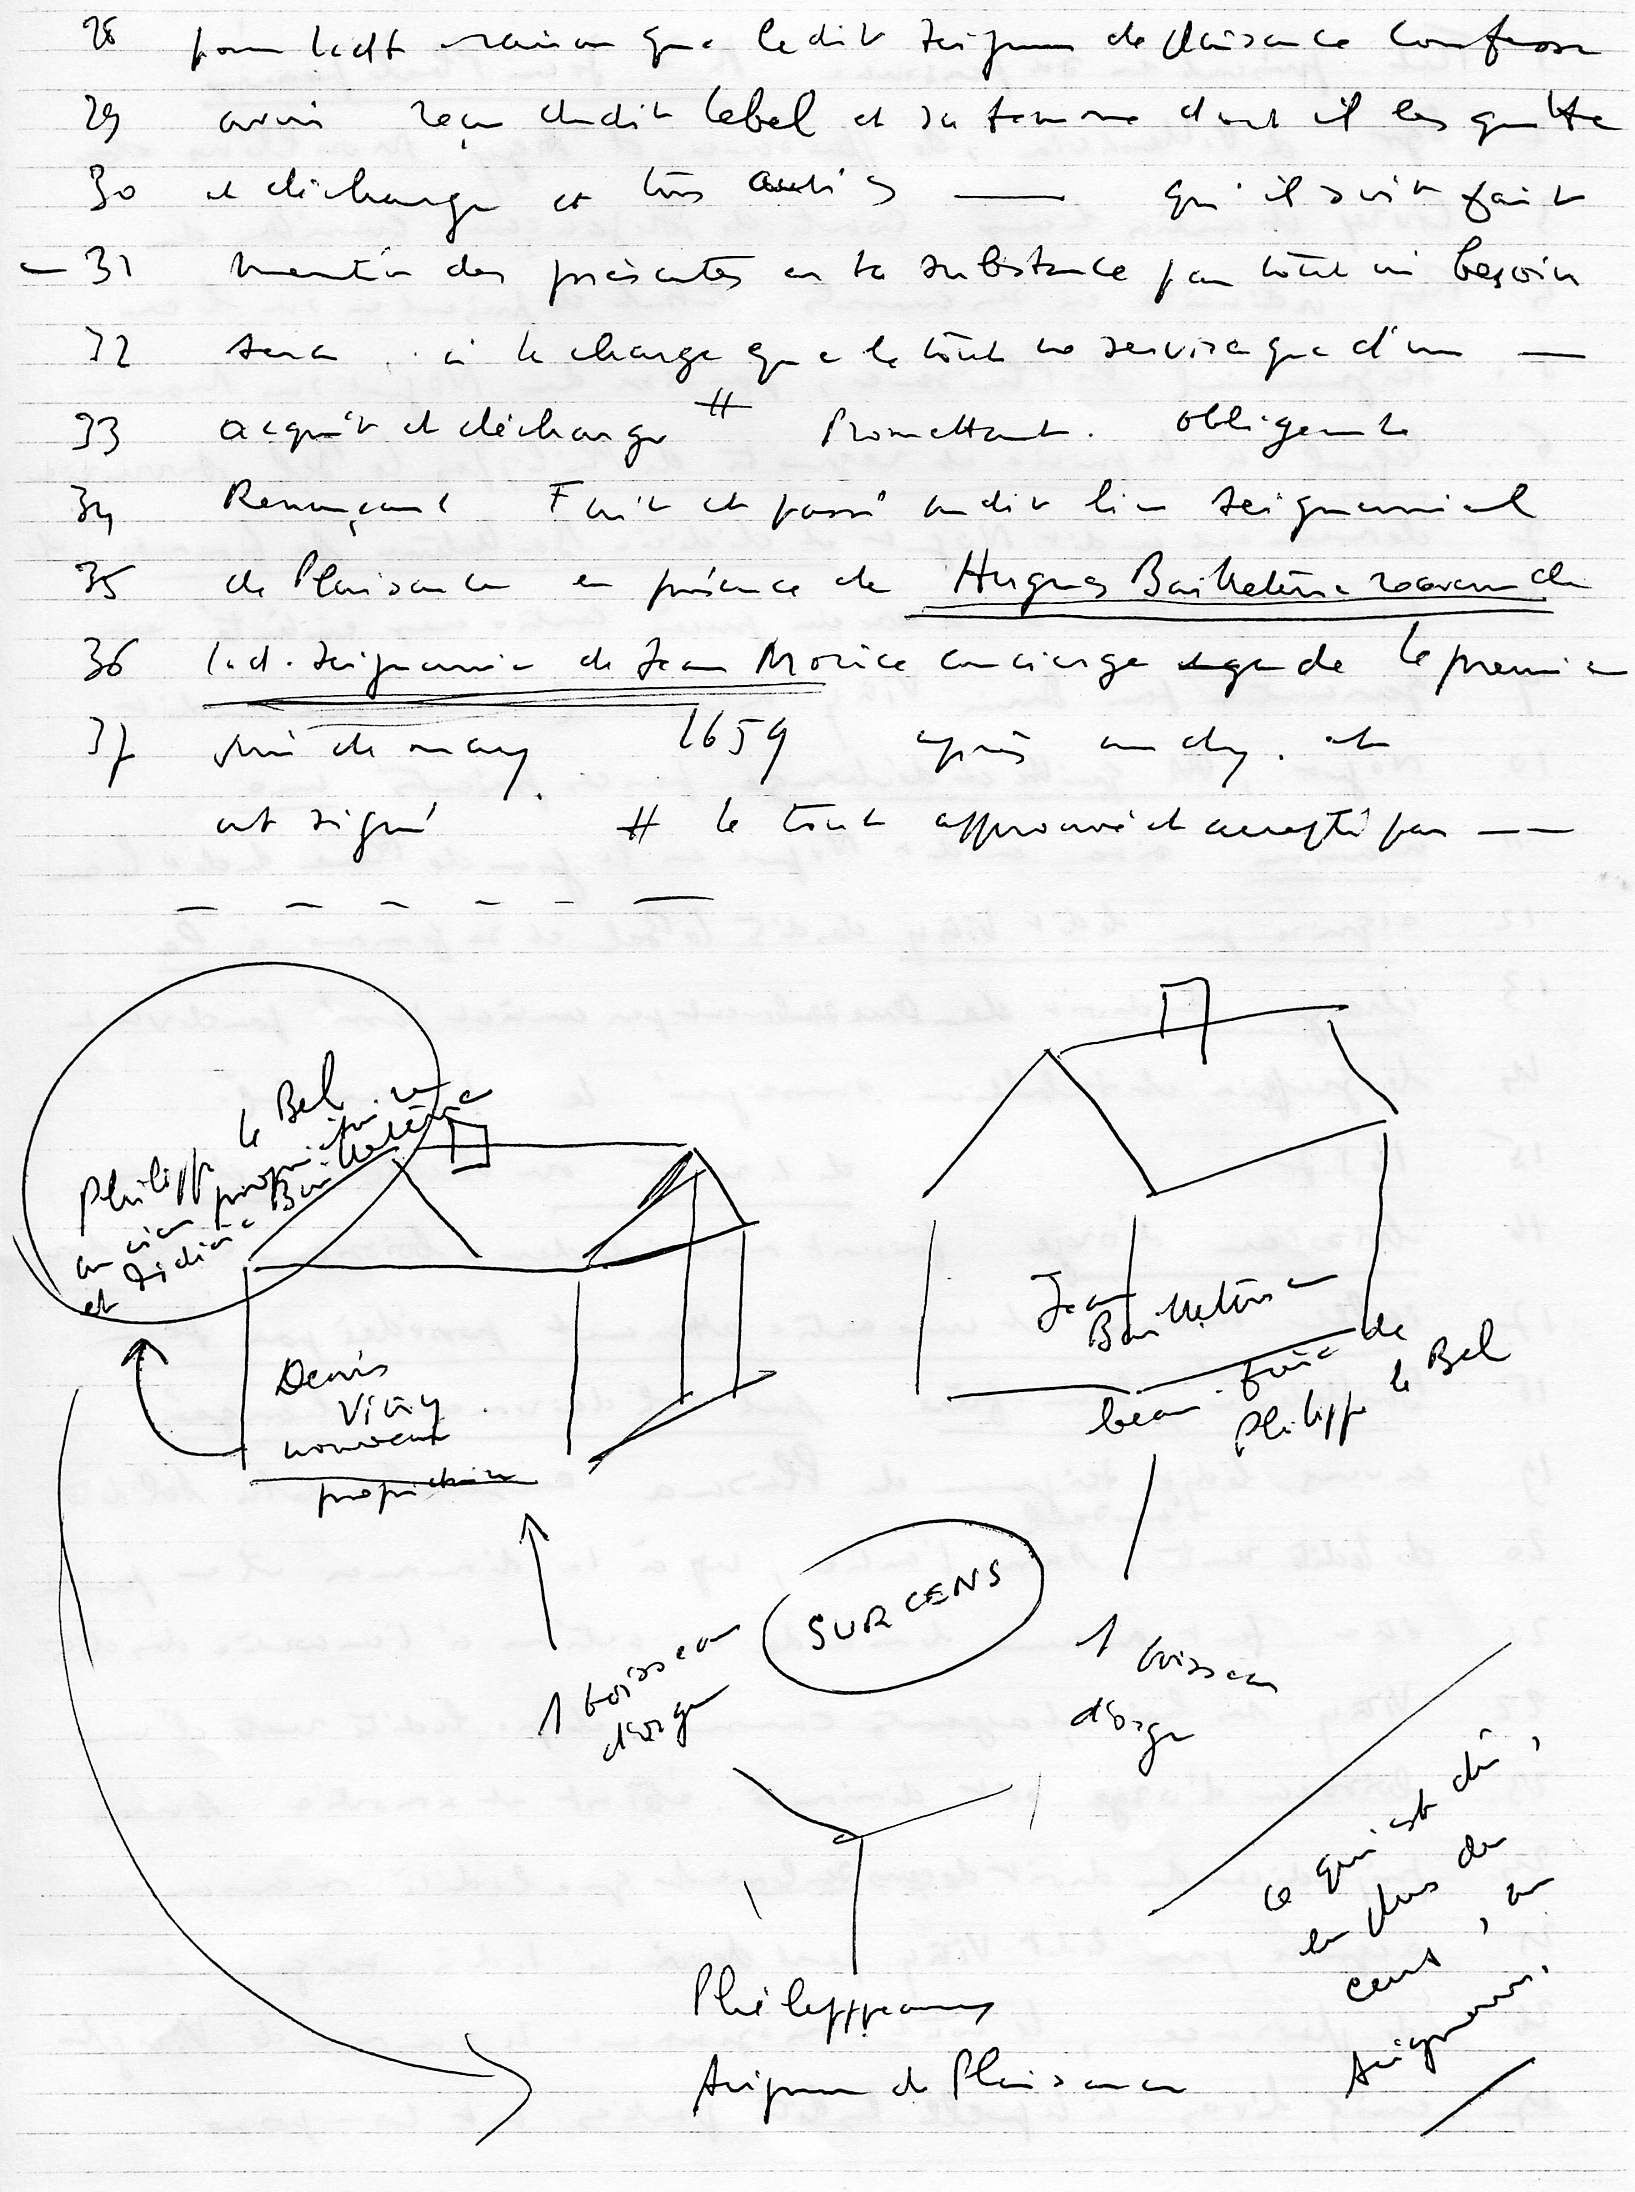 28 pour ladt maison que ledit seigneur de plaisance confesse
29 avoir reçu dudit lebel et sa femme dont il les quitte
30 et décharge et tous autres — qu'il soit fait
— 31 mention des présentes en la substance par tout où besoin
32 sera . à la charge que le tout ne servira que d'un —
33 acquit et décharge # Promettant . obligeant
34 Renonçant Fait et passé audit lieu seigneurial
35 de Plaisance en présence de Hugues Bailletère receveur de
36 lad. seigneurie de Jean Morice concierge le premier
37 de may . 1659 après midy . et
ont signé # le tout approuvé et accepté par ——
Philippe le Bel
ancien propriétaire
et Bailletère
Denis
Vitry
nouveau
propriétaire
Jean
Bailletère
beau-frère de
Philippe le Bel
SURCENS
1 boisseau
d'orge
1 boisseau
d'orge
ce qui est dû,
en plus du
cens, au
seigneur.
Philippeaux
seigneur de Plaisance